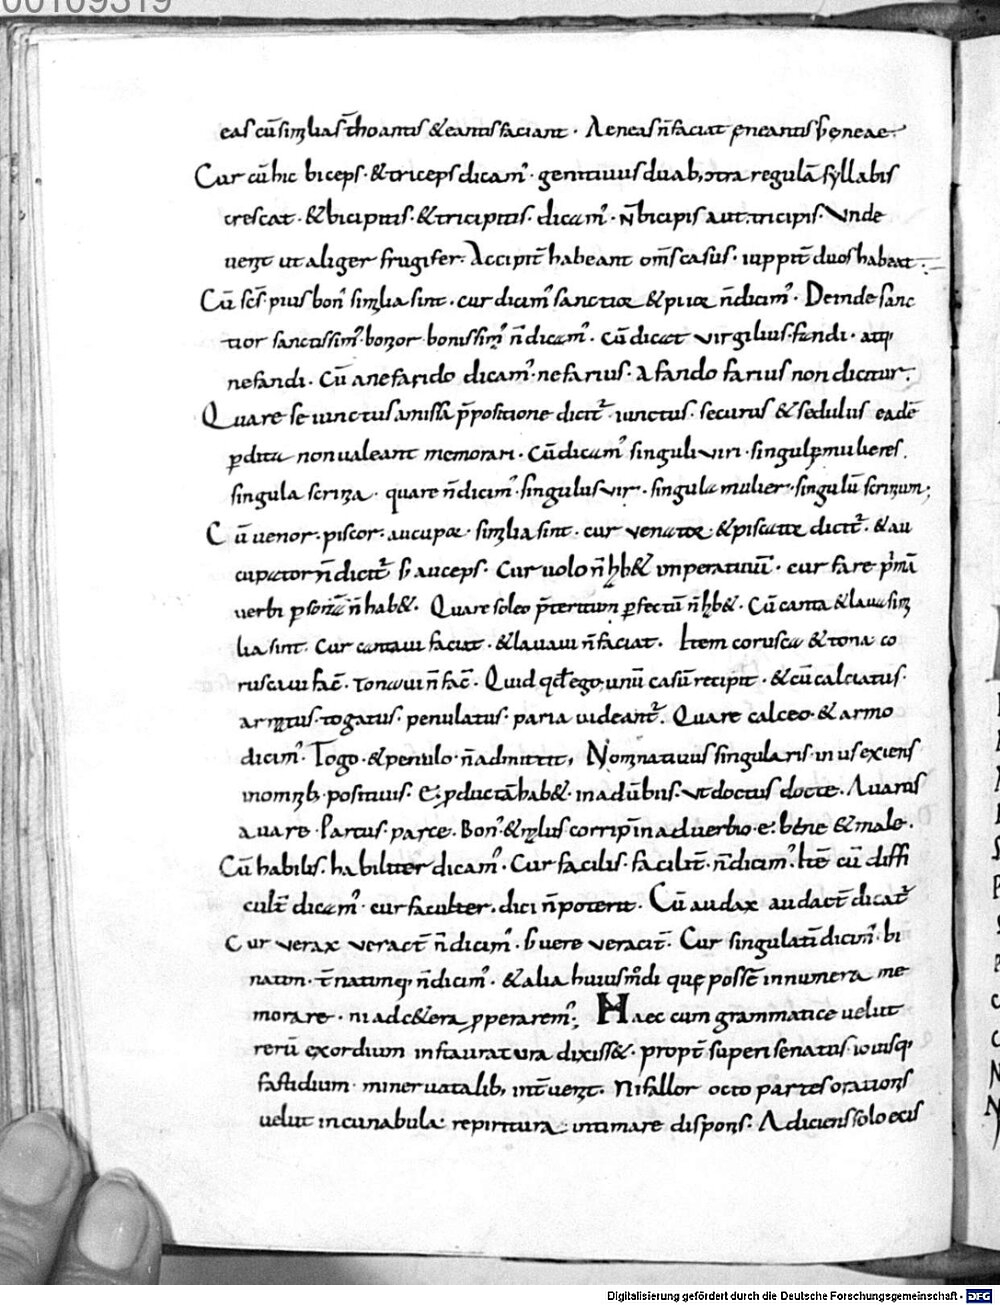 00109319
eas cū similia s̄ thoantis & eantis faciant · Aeneas n̄ facit ęneantis s; ęneae ·
Cur cū hic biceps · & triceps dicam᷒ · genitiuus duab; ctra regulā syllabis
crescat · & bicipitis · & tricipitis · dicim᷒ · n̄ bicipis aut tricipis · Vnde
uenit ut aliger frugifer · Accipit̄ habeant om̄s casus · iuppit̄ duos habeat ·
Cū sc̄s pius bon᷒ similia sint · cur dicim᷒ sanctior & piior n̄ dicim᷒ · Deinde sanc
tior sanctissim᷒ · bonor bonissim᷒ n̄ dicim᷒ · cū dicat virgilius · fandi · atq;
nefandi · Cū a nefando dicam᷒ · nefarius · a fando farius non dicitur ·
Quare seiunctus amissa p̄positione dicit᷑ iunctus · securus & sedulus eadē
ꝑdita non ualeant memorari · Cū dicam᷒ singuli viri · singulę mulieres ·
singula scrinia · quare n̄ dicim᷒ · singulus vir · singula mulier · singulū scrinium ;
Cū uenor · piscor · aucupor · similia sint · cur venator · & piscator dicit᷑ · & au
cupator n̄ dicit᷑ s; auceps · Cur uolo n̄ hab& imperatiuū · cur fare primā
uerbi ꝑsonā n̄ hab& · Quare soleo p̄teritum ꝑfectū n̄ hab& · Cū canta & laua simi
lia sint · Cur cantaui faciat · & lauaui n̄ faciat · Item corusca & tona co
ruscaui fac̄ · tonaui n̄ fac̄ · Quid qd̄ ego unū casū recipit · & cū calciatus ·
armatus · togatus · penulatus · paria uideant᷑ · Quare calceo · & armo
dicim᷒ · Togo · & penulo · n̄ admittit , Nominatiuus singularis in us exiens
in nominib; positiuis · E ꝓductā hab& · in aduerbiis · vt doctus docte · Auarus
auare · Parcus · parce · Bon᷒ · & malus corripiī in aduerbio · e · bene & male ·
Cū habilis · habiliter dicam᷒ · Cur facilis · facilit̄ · n̄ dicim᷒ · Itē cū diffi
cult̄ dicam᷒ · cur faculter · dici n̄ poterit · Cū audax audact̄ dicat᷑
Cur verax veract̄ n̄ dicim᷒ · s; uere veracit̄ · Cur singulatī dicim᷒ · bi
natim · t̄natimq; n̄ dicim᷒ · & alia huiusm̄di quę possē innumera me
morare · ni ad c&era ꝓperarem᷒ ; Haec cum grammatice uelut
rerū exordium instauratura dixiss& · propt̄ superi senatus iouisq;
fastidium minerua talib; int̄uenit · Ni fallor octo partes orationis
uelut incunabula repititura intimare disponis · Adiciens soloecis
Digitalisierung gefördert durch die Deutsche Forschungsgemeinschaft - DFG